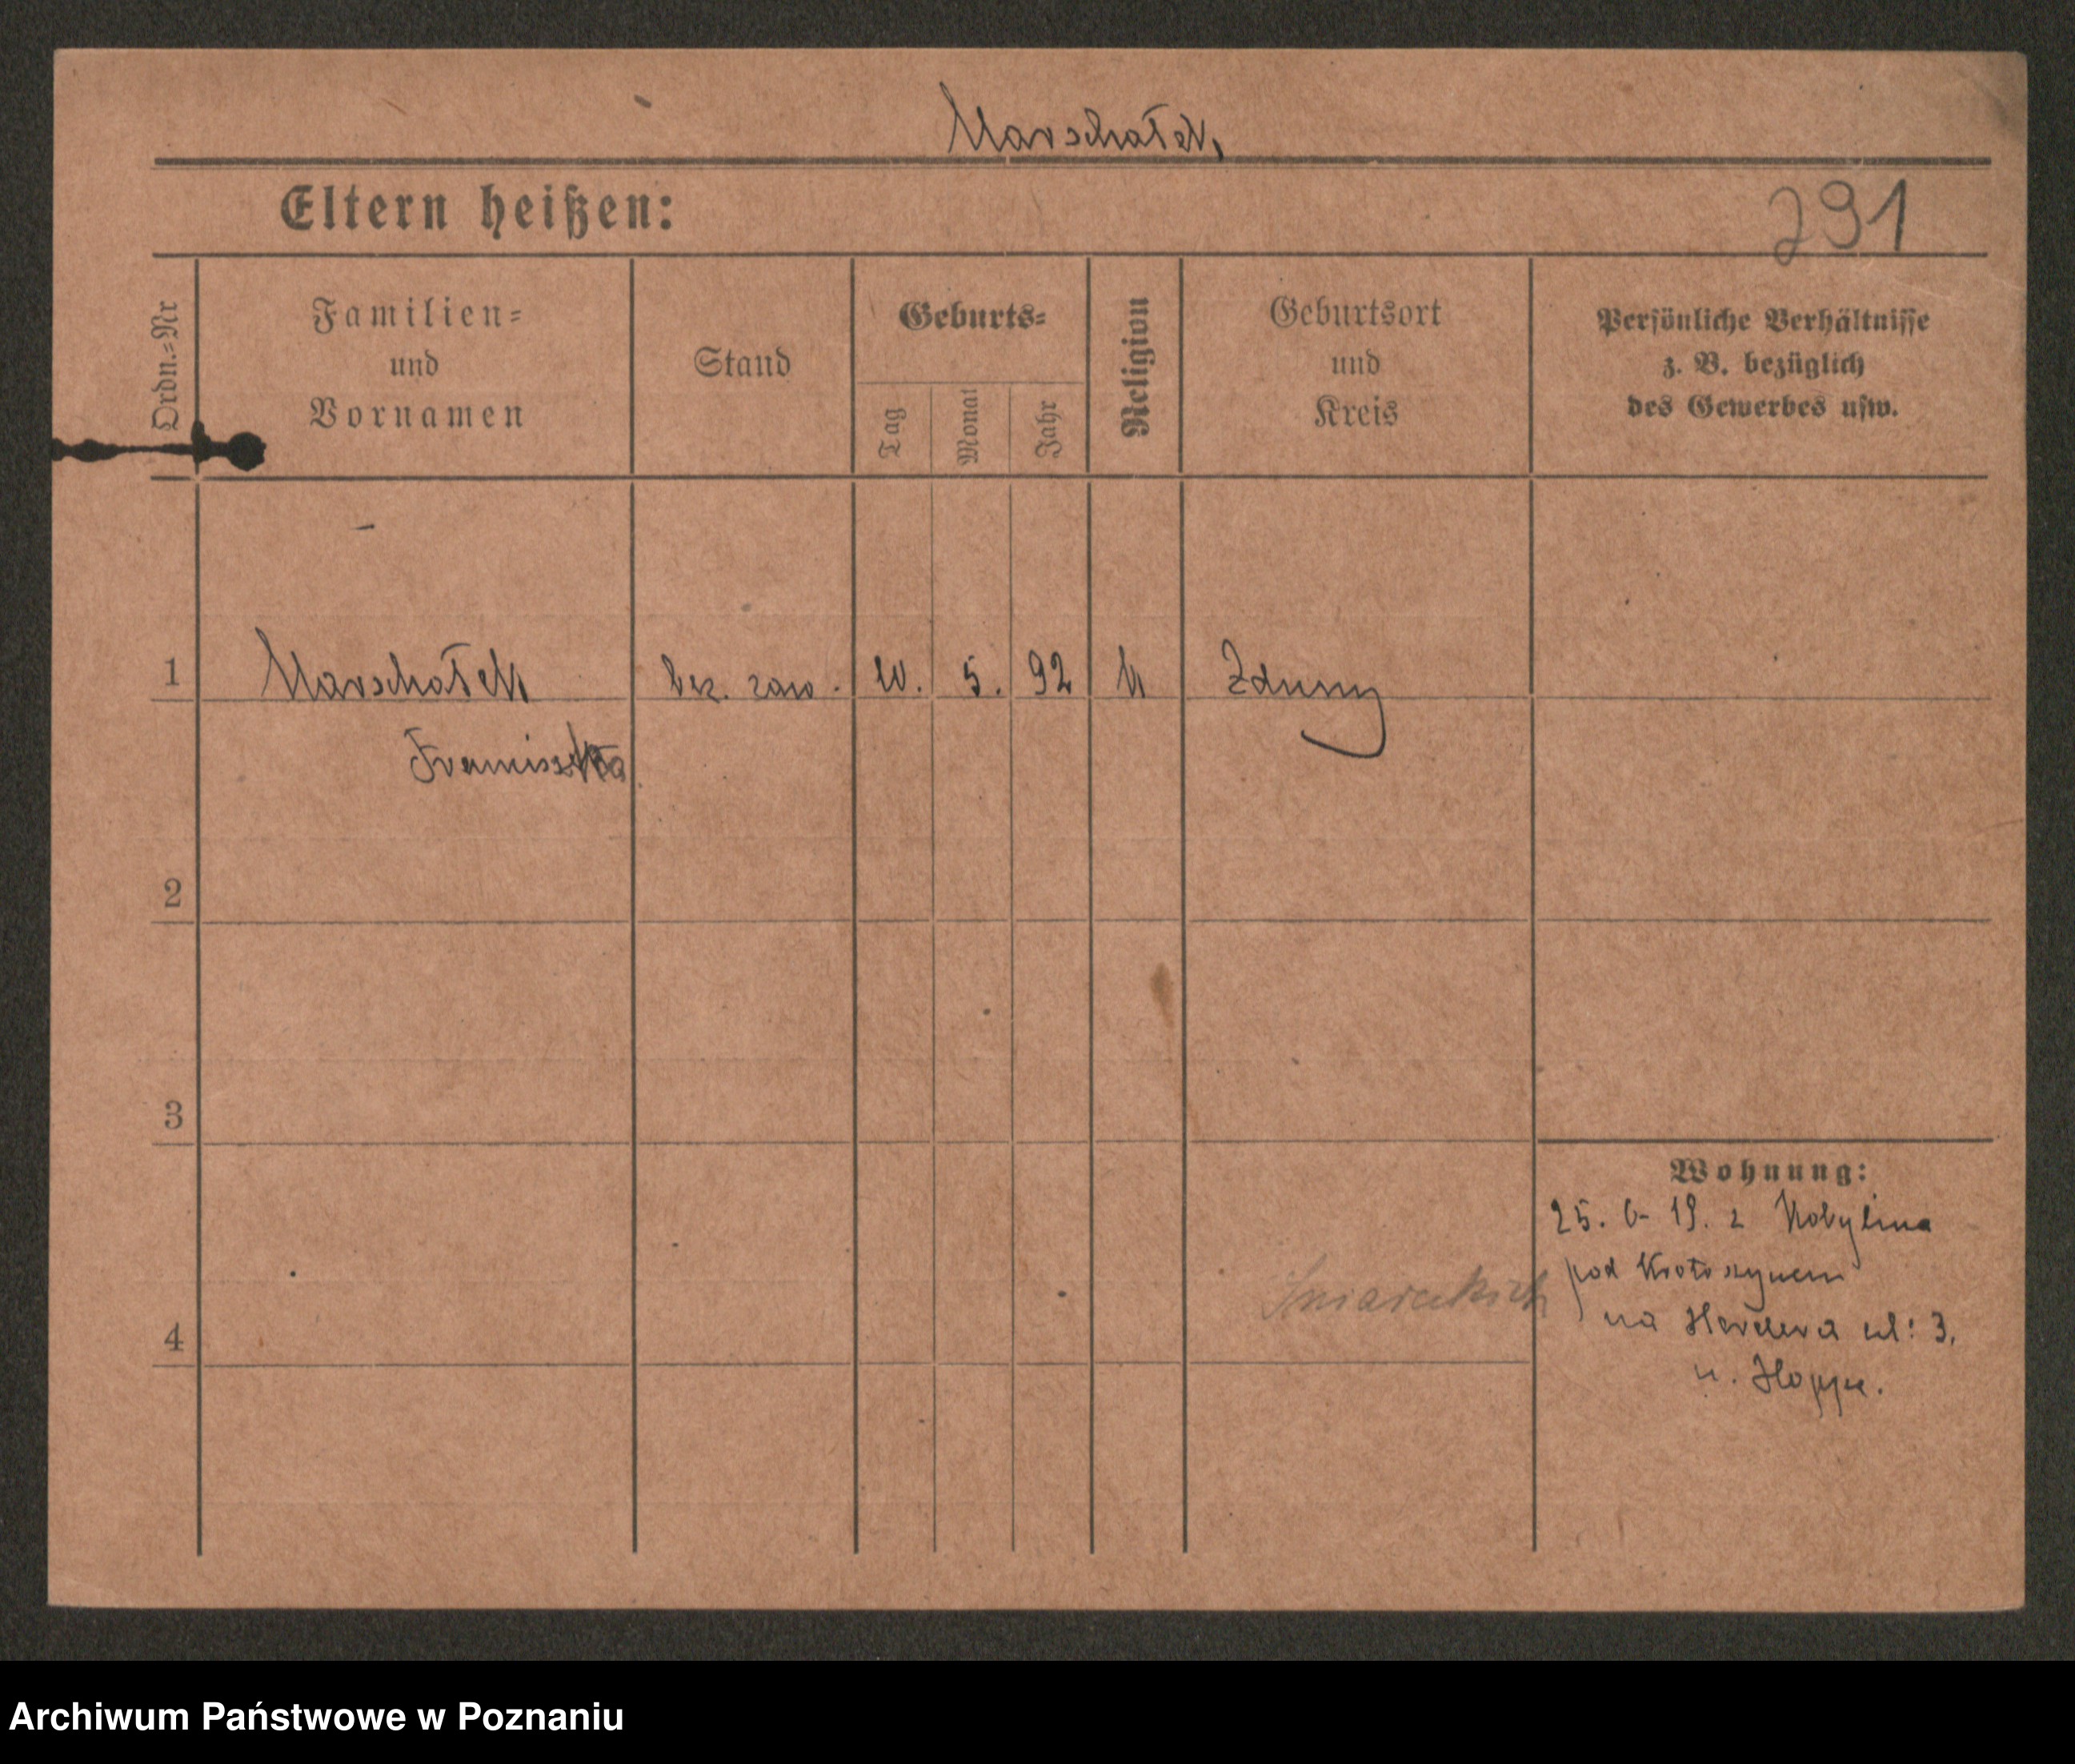 Marschałek
Eltern heißen:
291
Ordn.=Nr
Familien=
und
Vornamen
Stand
Geburts=
Tag
Monat
Jahr
Religion
Geburtsort
und
Kreis
Persönliche Verhältnisse
z. B. bezüglich
des Gewerbes usw.
1 Marschałek bez. zaw. 10. 5. 92 k Zduny
Franciszka
2
3
Wohnung:
25. 6- 19. z Kobylina
pod Krotoszynem
na Herdera ul: 3.
u. Hoppe.
4
Archiwum Państwowe w Poznaniu